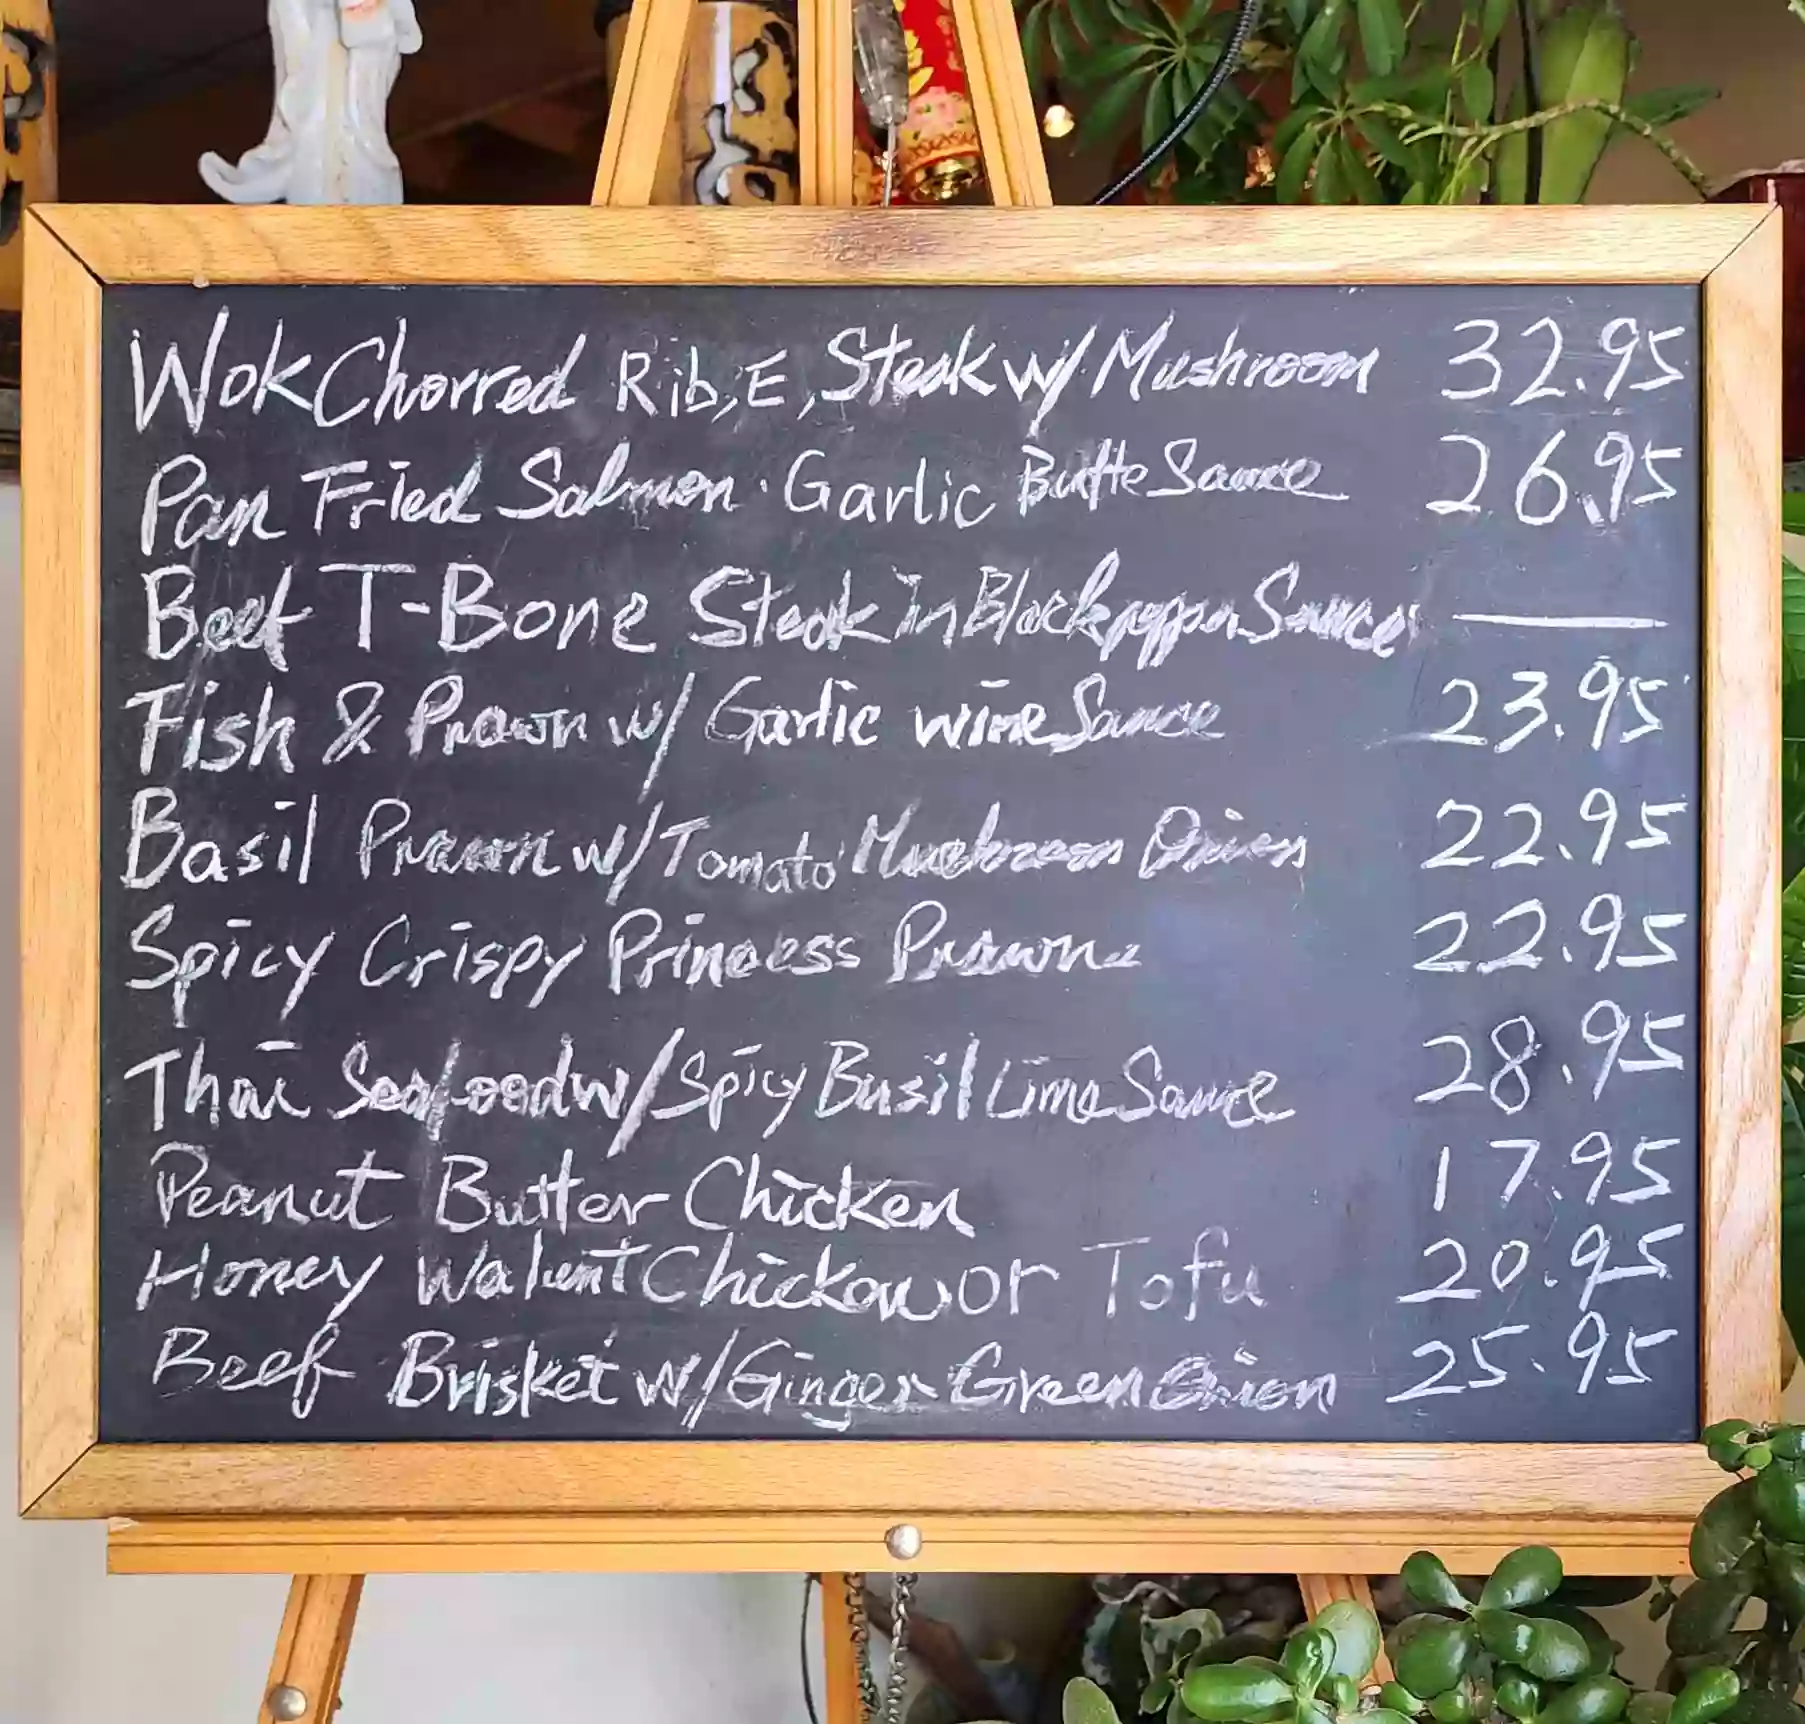 Wok Chorred Rib, E, Steak w/ Mushroom 32.95
Pan Fried Salmon. Garlic Butte Sauce 26.95
Beef T-Bone Steak in Black pepper Sauce —
Fish & Prawn w/ Garlic wine Sauce 23.95
Basil Prawn w/ Tomato Mushroom Onion 22.95
Spicy Crispy Princess Prawns 22.95
Thai Seafood w/ Spicy Basil Lime Sauce 28.95
Peanut Butter Chicken 17.95
Honey Walunt Chicken or Tofu 20.95
Beef Brisket w/ Ginger Green Onion 25.95